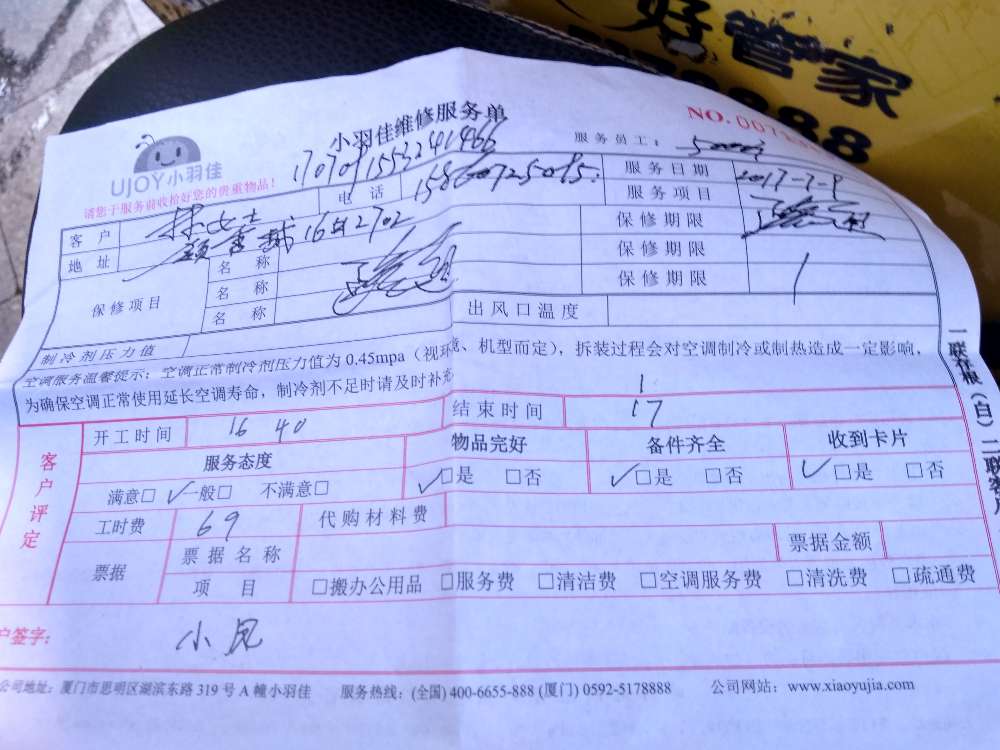 好管家
小羽佳维修服务单
NO.
服务员工：
UJOY小羽佳
170709155324 1466
请您于服务前收拾好您的贵重物品！
客户 林女士 电话 15860725095. 服务日期 2017-7-9
地址 16号2702 服务项目
保修项目 名称 保修期限
名称 保修期限
名称 保修期限
制冷剂压力值 出风口温度
空调服务温馨提示：空调正常制冷剂压力值为 0.45mpa（视环境、机型而定），拆装过程会对空调制冷或制热造成一定影响，
为确保空调正常使用延长空调寿命，制冷剂不足时请及时补充
一联存根（白）二联客户
客户评定
开工时间 16 40 结束时间 17
服务态度 物品完好 备件齐全 收到卡片
满意□ ✓一般□ 不满意□ ✓□是 □否 ✓□是 □否 ✓□是 □否
工时费 69 代购材料费
票据 票据名称 票据金额
项目 □搬办公用品 □服务费 □清洁费 □空调服务费 □清洗费 □疏通费
户签字： 小凤
公司地址：厦门市思明区湖滨东路 319 号 A 幢小羽佳 服务热线：(全国) 400-6655-888 (厦门) 0592-5178888 公司网站：www.xiaoyujia.com